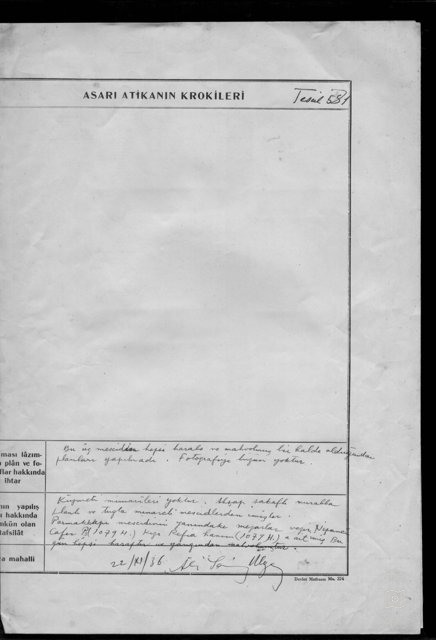 ASARI ATİKANIN KROKİLERİ
Tescil 581
ması lâzım-
plân ve fo-
flar hakkında
ihtar
Bu üç mescidin hepsi harab ve mahvolmuş bir halde olduğundan
planları yapılmadı. Fotoğrafiye lüzum yoktur.
nın yapılış
hakkında
mkün olan
tafsilât
Kıymetli mimarileri yoktur. Ahşap sakaflı
planlı ve tuğla minareli mescidlerden imişler.
Parmakkapı mescidinin yanındaki mezarlar
Cafer (1079 H.) kızı hanım (1079 H.) a ait imiş Bu
gün hepsi haraptır ve yangından
a mahalli
22/XI/36
Ali Ülgen
Devlet Matbaası Mu. 324